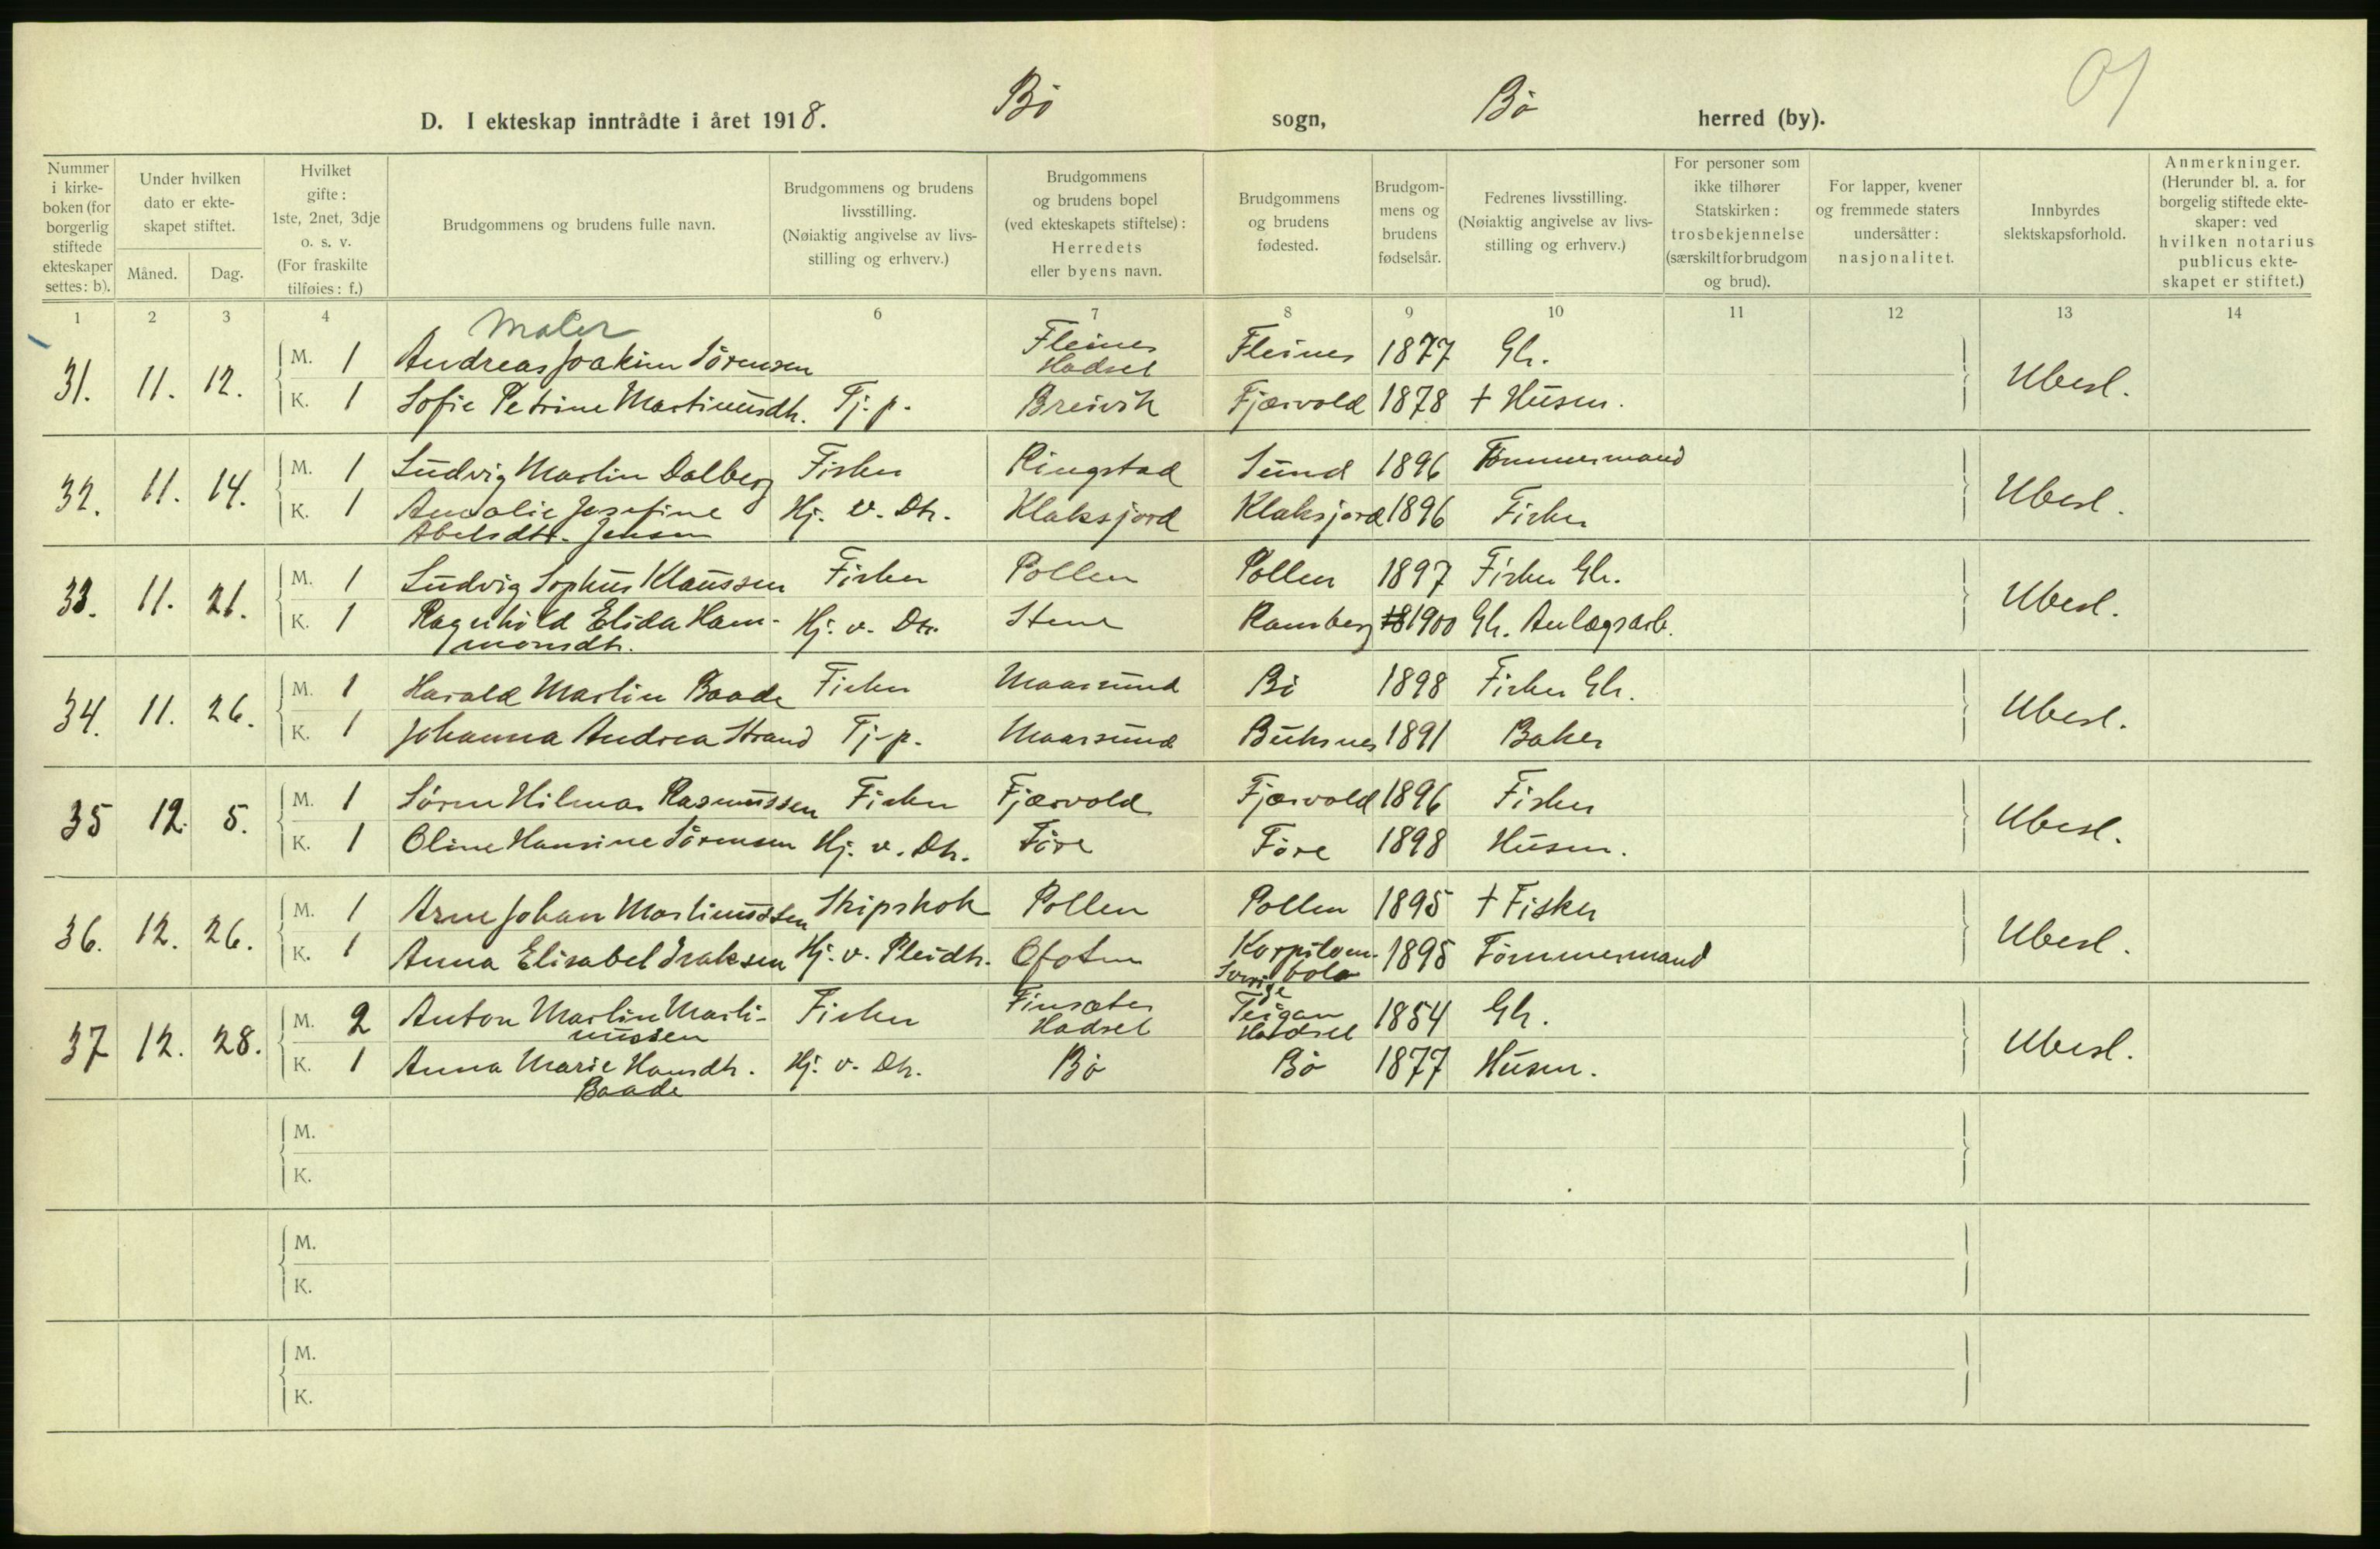 D. I ekteskap inntrådte i året 1918. Bö sogn, Bö herred (by).
Nummer i kirkeboken (for borgerlig stiftede ekteskaper settes: b).
Under hvilken dato er ekteskapet stiftet.
Måned. Dag.
Hvilket gifte: 1ste, 2net, 3dje o. s. v. (For fraskilte tilføies: f.)
Brudgommens og brudens fulle navn.
Brudgommens og brudens livsstilling. (Nøiaktig angivelse av livsstilling og erhverv.)
Brudgommens og brudens bopel (ved ekteskapets stiftelse): Herredets eller byens navn.
Brudgommens og brudens fødested.
Brudgommens og brudens fødselsår.
Fedrenes livsstilling. (Nøiaktig angivelse av livsstilling og erhverv.)
For personer som ikke tilhører Statskirken: trosbekjennelse (særskilt for brudgom og brud).
For lapper, kvener og fremmede staters undersåtter: nasjonalitet.
Innbyrdes slektskapsforhold.
Anmerkninger. (Herunder bl. a. for borgelig stiftede ekteskaper: ved hvilken notarius publicus ekteskapet er stiftet.)
1 2 3 4 6 7 8 9 10 11 12 13 14
Maler
31. 11. 12. M. 1 Andreas Joakim Sörensen Fleines Hadsel Fleines 1877 Gb. Ubesl.
K. 1 Sofie Petrine Martinusdtr. Tj. p. Breivik Fjærvold 1878 + Husm.
32. 11. 14. M. 1 Ludvig Martin Dalberg Fisker Ringstad Sund 1896 Tömmermand Ubesl.
K. 1 Amalie Josefine Hj. v. Dtr. Klaksjord Klaksjord 1896 Fisker
Abelsdtr. Jensen
33. 11. 21. M. 1 Ludvig Sophus Klaussen Fisker Pollen Pollen 1897 Fisker Gb. Ubesl.
K. 1 Ragnhild Elida Ham- Hj. v. Dtr. Stene Ramberg 18 1900 Gb. Anlægsarb.
monsdtr.
34. 11. 26. M. 1 Harald Martin Baade Fisker Maarsund Bö 1898 Fisker Gb. Ubesl.
K. 1 Johanna Andrea Strand Tj-p. Maarsund Buksnes 1891 Baker
35 12. 5. M. 1 Sören Hilmar Rasmussen Fisker Fjærvold Fjærvold 1896 Fisker Ubesl.
K. 1 Oline Hansine Sörensen Hj. v. Dtr. Före Före 1898 Husm.
36. 12. 26. M. 1 Arne Johan Martinussen Skipskok Pollen Pollen 1895 + Fisker Ubesl.
K. 1 Anna Elisabet Isaksen Hj. v. Pleidtr. Ofoten Korpilom- 1895 Tömmermand
bolo Sverige
37 12. 28. M. 2 Anton Martin Marti- Fisker Finsæter Hadsel Teigan Hadsel 1854 Gb. Ubesl.
nussen
K. 1 Anna Marie Hansdtr. Hj. v. Dtr. Bö Bö 1877 Husm.
Baade
M.
K.
M.
K.
M.
K.